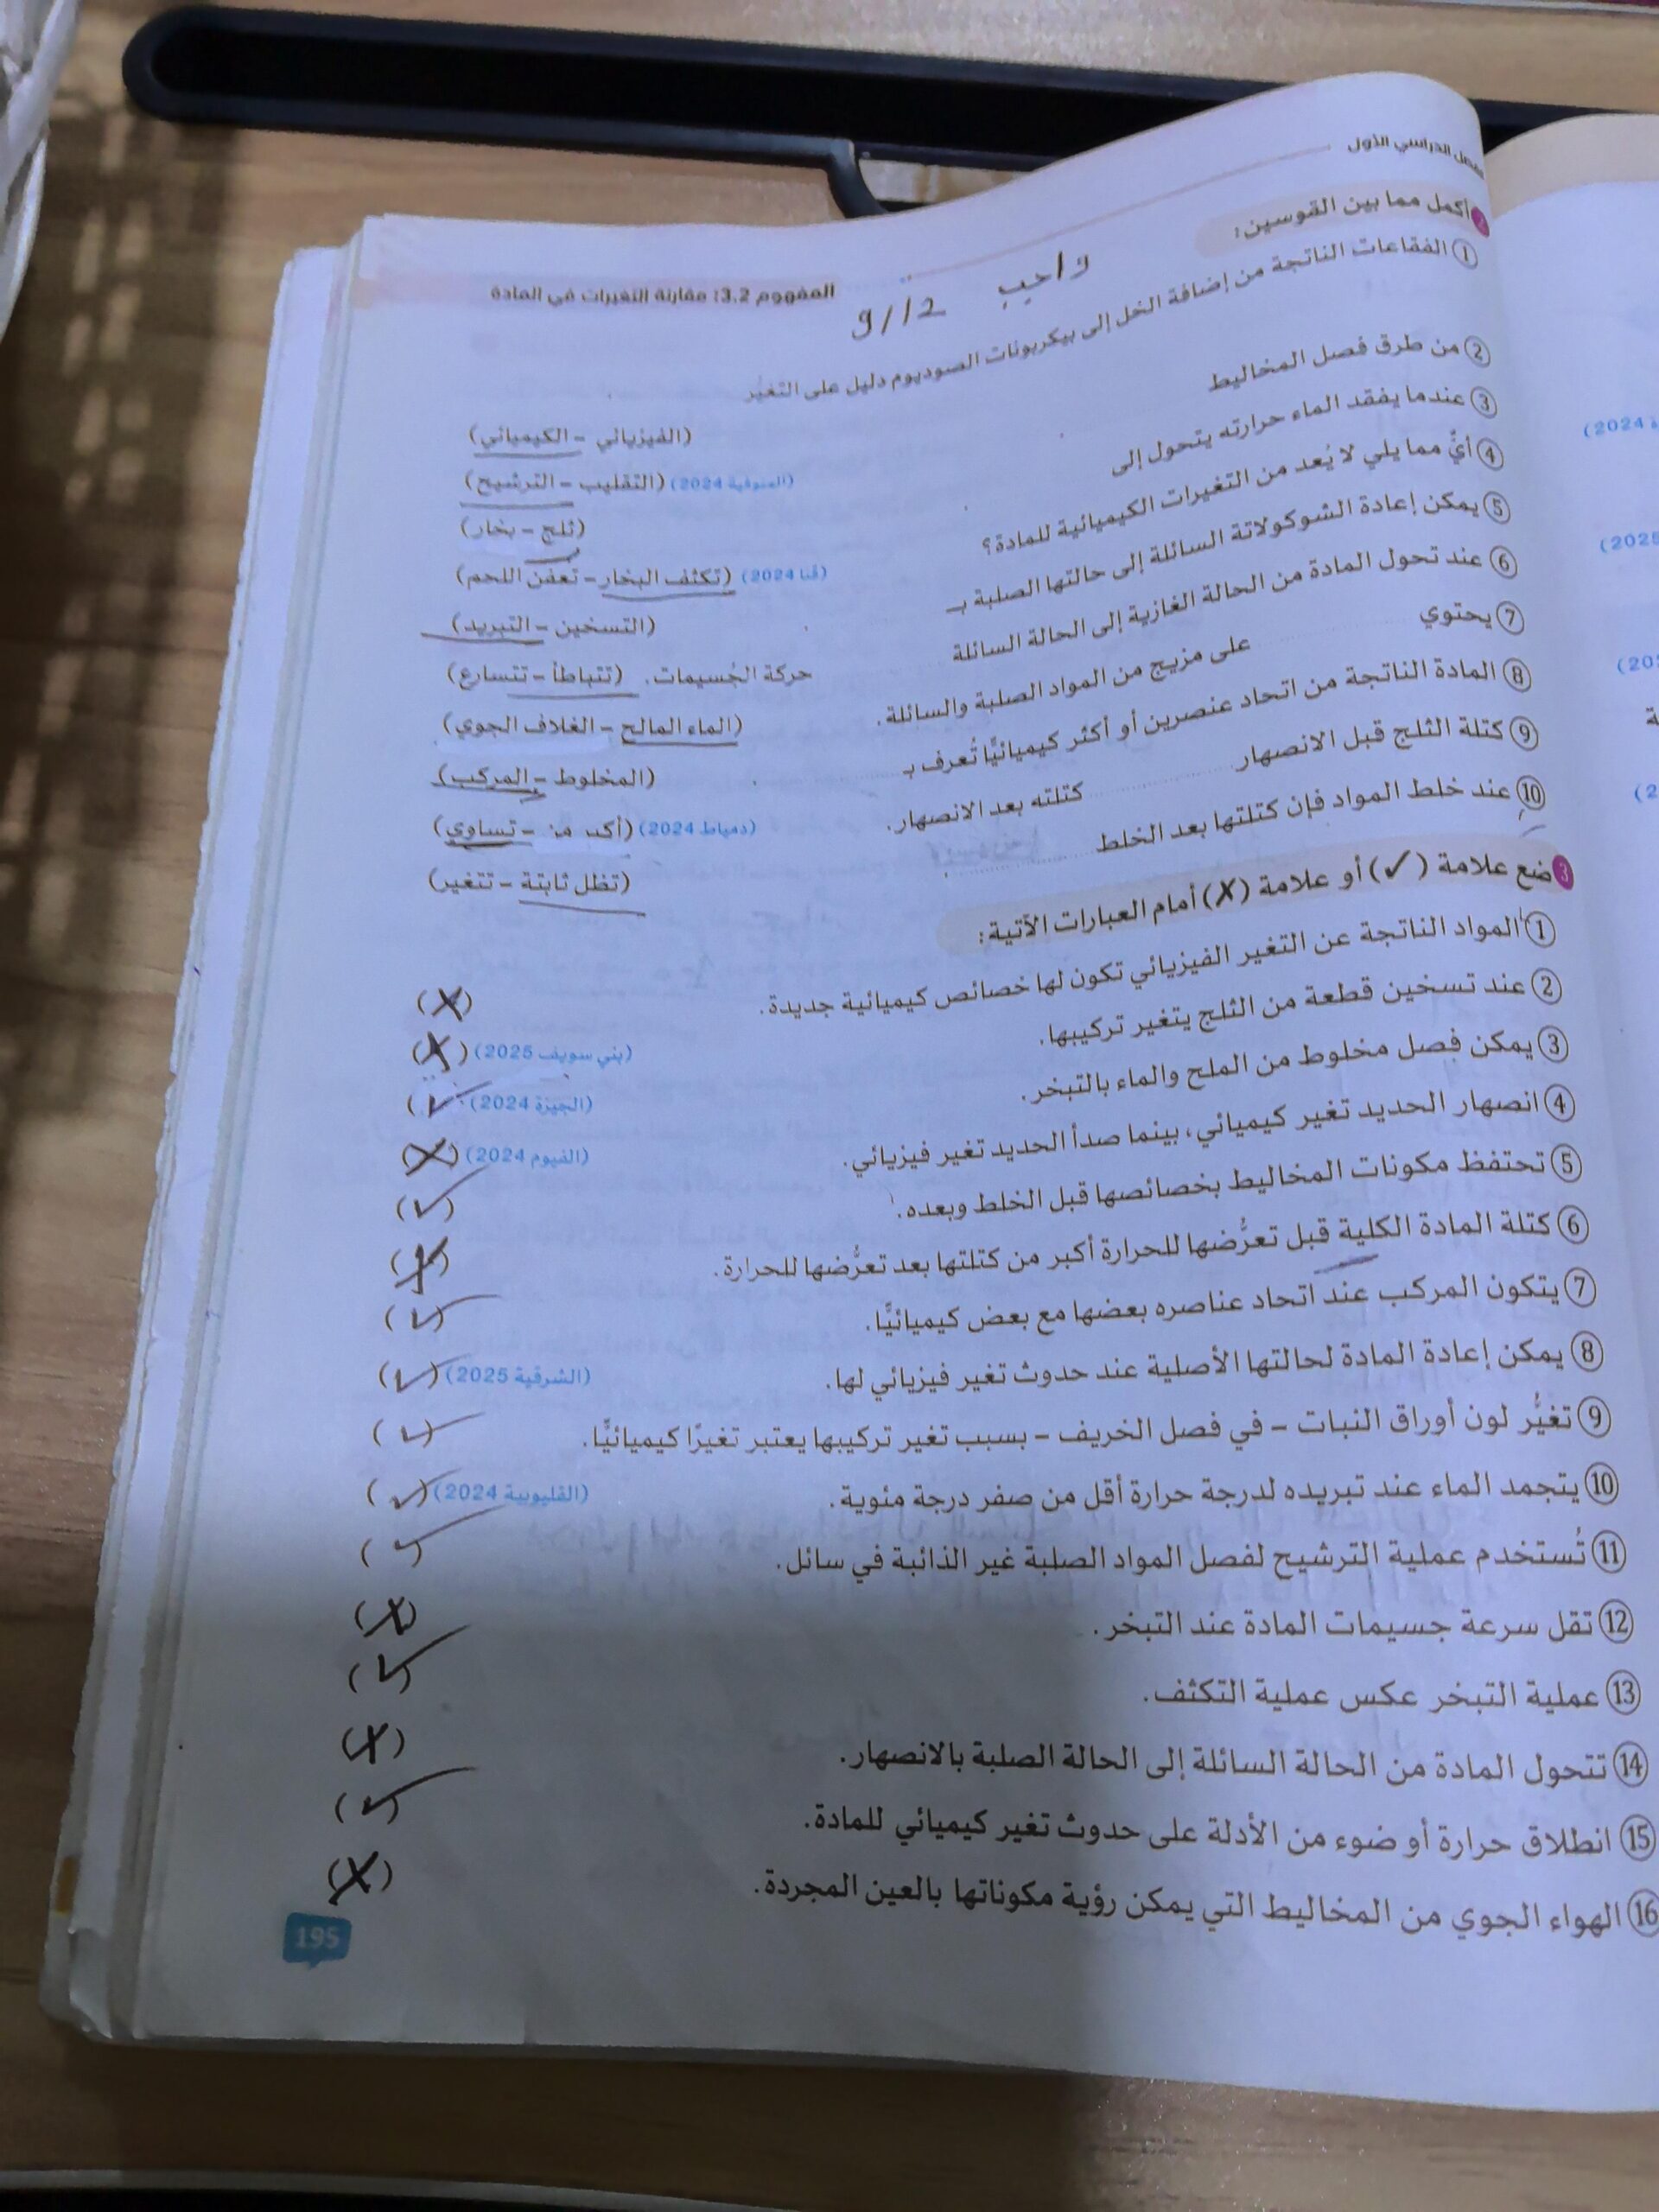 الفصل الدراسي الأول
المفهوم 3.2: مقارنة التغيرات في المادة
واجب 9/12
2 أكمل مما بين القوسين:
1 الفقاعات الناتجة من إضافة الخل إلى بيكربونات الصوديوم دليل على التغير (الفيزيائي – الكيميائي)
2 من طرق فصل المخاليط (المنوفية 2024) (التقليب – الترشيح)
3 عندما يفقد الماء حرارته يتحول إلى (ثلج – بخار)
4 أيٌّ مما يلي لا يُعد من التغيرات الكيميائية للمادة؟ (قنا 2024) (تكثف البخار – تعفن اللحم)
5 يمكن إعادة الشوكولاتة السائلة إلى حالتها الصلبة بـ (التسخين – التبريد)
6 عند تحول المادة من الحالة الغازية إلى الحالة السائلة حركة الجُسيمات. (تتباطأ – تتسارع)
7 يحتوي على مزيج من المواد الصلبة والسائلة. (الماء المالح – الغلاف الجوي)
8 المادة الناتجة من اتحاد عنصرين أو أكثر كيميائيًّا تُعرف بـ (المخلوط – المركب)
9 كتلة الثلج قبل الانصهار كتلته بعد الانصهار. (دمياط 2024) (أكبر من – تساوي)
10 عند خلط المواد فإن كتلتها بعد الخلط (تظل ثابتة – تتغير)
3 ضع علامة (✓) أو علامة (X) أمام العبارات الآتية:
1 المواد الناتجة عن التغير الفيزيائي تكون لها خصائص كيميائية جديدة. (X)
2 عند تسخين قطعة من الثلج يتغير تركيبها. (بني سويف 2025) (X)
3 يمكن فصل مخلوط من الملح والماء بالتبخر. (الجيزة 2024) (✓)
4 انصهار الحديد تغير كيميائي، بينما صدأ الحديد تغير فيزيائي. (الفيوم 2024) (X)
5 تحتفظ مكونات المخاليط بخصائصها قبل الخلط وبعده. (✓)
6 كتلة المادة الكلية قبل تعرُّضها للحرارة أكبر من كتلتها بعد تعرُّضها للحرارة. (X)
7 يتكون المركب عند اتحاد عناصره بعضها مع بعض كيميائيًّا. (✓)
8 يمكن إعادة المادة لحالتها الأصلية عند حدوث تغير فيزيائي لها. (الشرقية 2025) (✓)
9 تغيُّر لون أوراق النبات – في فصل الخريف – بسبب تغير تركيبها يعتبر تغيرًا كيميائيًّا. (✓)
10 يتجمد الماء عند تبريده لدرجة حرارة أقل من صفر درجة مئوية. (القليوبية 2024) (✓)
11 تُستخدم عملية الترشيح لفصل المواد الصلبة غير الذائبة في سائل. (✓)
12 تقل سرعة جسيمات المادة عند التبخر. (X)
13 عملية التبخر عكس عملية التكثف. (✓)
14 تتحول المادة من الحالة السائلة إلى الحالة الصلبة بالانصهار. (X)
15 انطلاق حرارة أو ضوء من الأدلة على حدوث تغير كيميائي للمادة. (✓)
16 الهواء الجوي من المخاليط التي يمكن رؤية مكوناتها بالعين المجردة. (X)
195